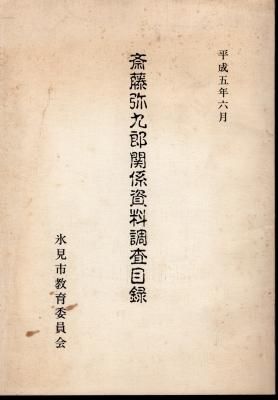 平成五年六月
斎藤弥九郎関係資料調査目録
氷見市教育委員会